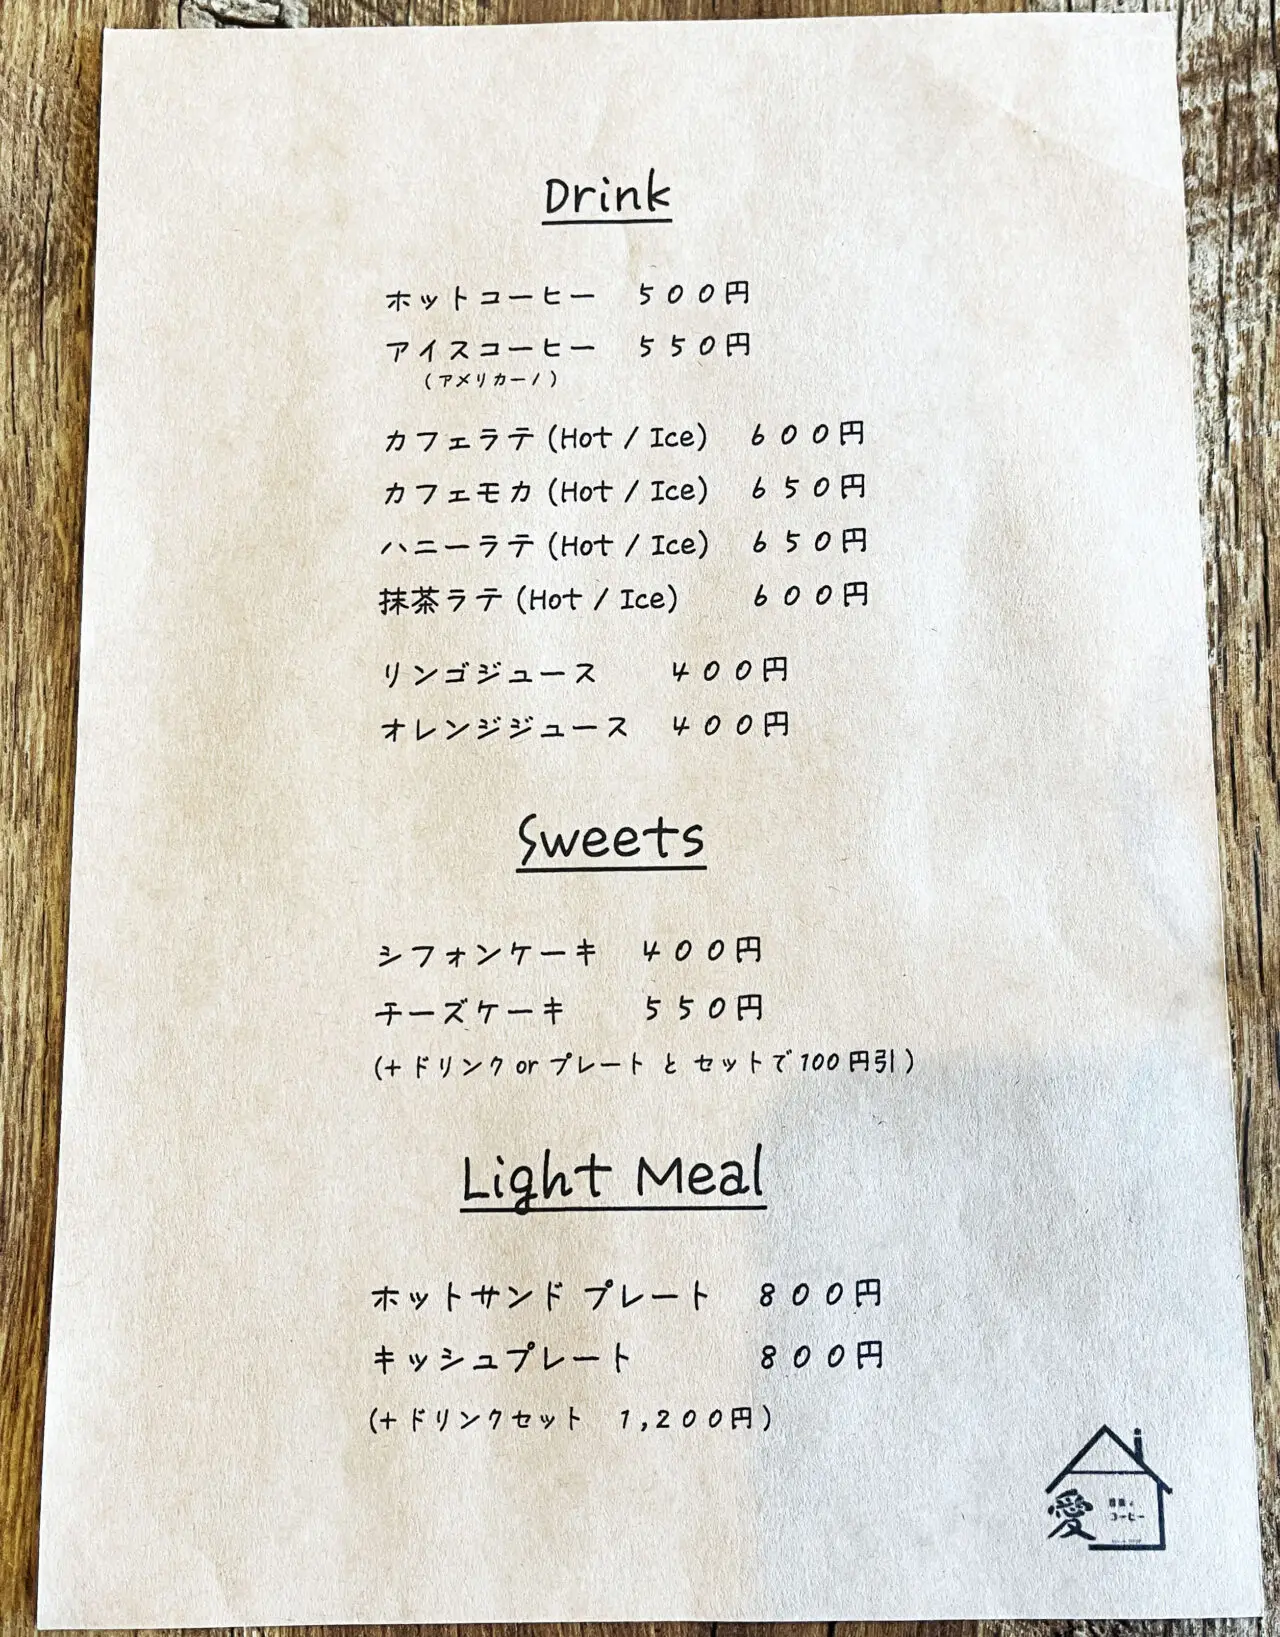 Drink
ホットコーヒー　５００円
アイスコーヒー　５５０円
(アメリカーノ)
カフェラテ (Hot / Ice)　６００円
カフェモカ (Hot / Ice)　６５０円
ハニーラテ (Hot / Ice)　６５０円
抹茶ラテ (Hot / Ice)　６００円
リンゴジュース　４００円
オレンジジュース　４００円
Sweets
シフォンケーキ　４００円
チーズケーキ　５５０円
(+ ドリンク or プレート と セットで 100 円引)
Light Meal
ホットサンド プレート　８００円
キッシュプレート　８００円
(+ ドリンクセット　１,２００円)
愛
コーヒー